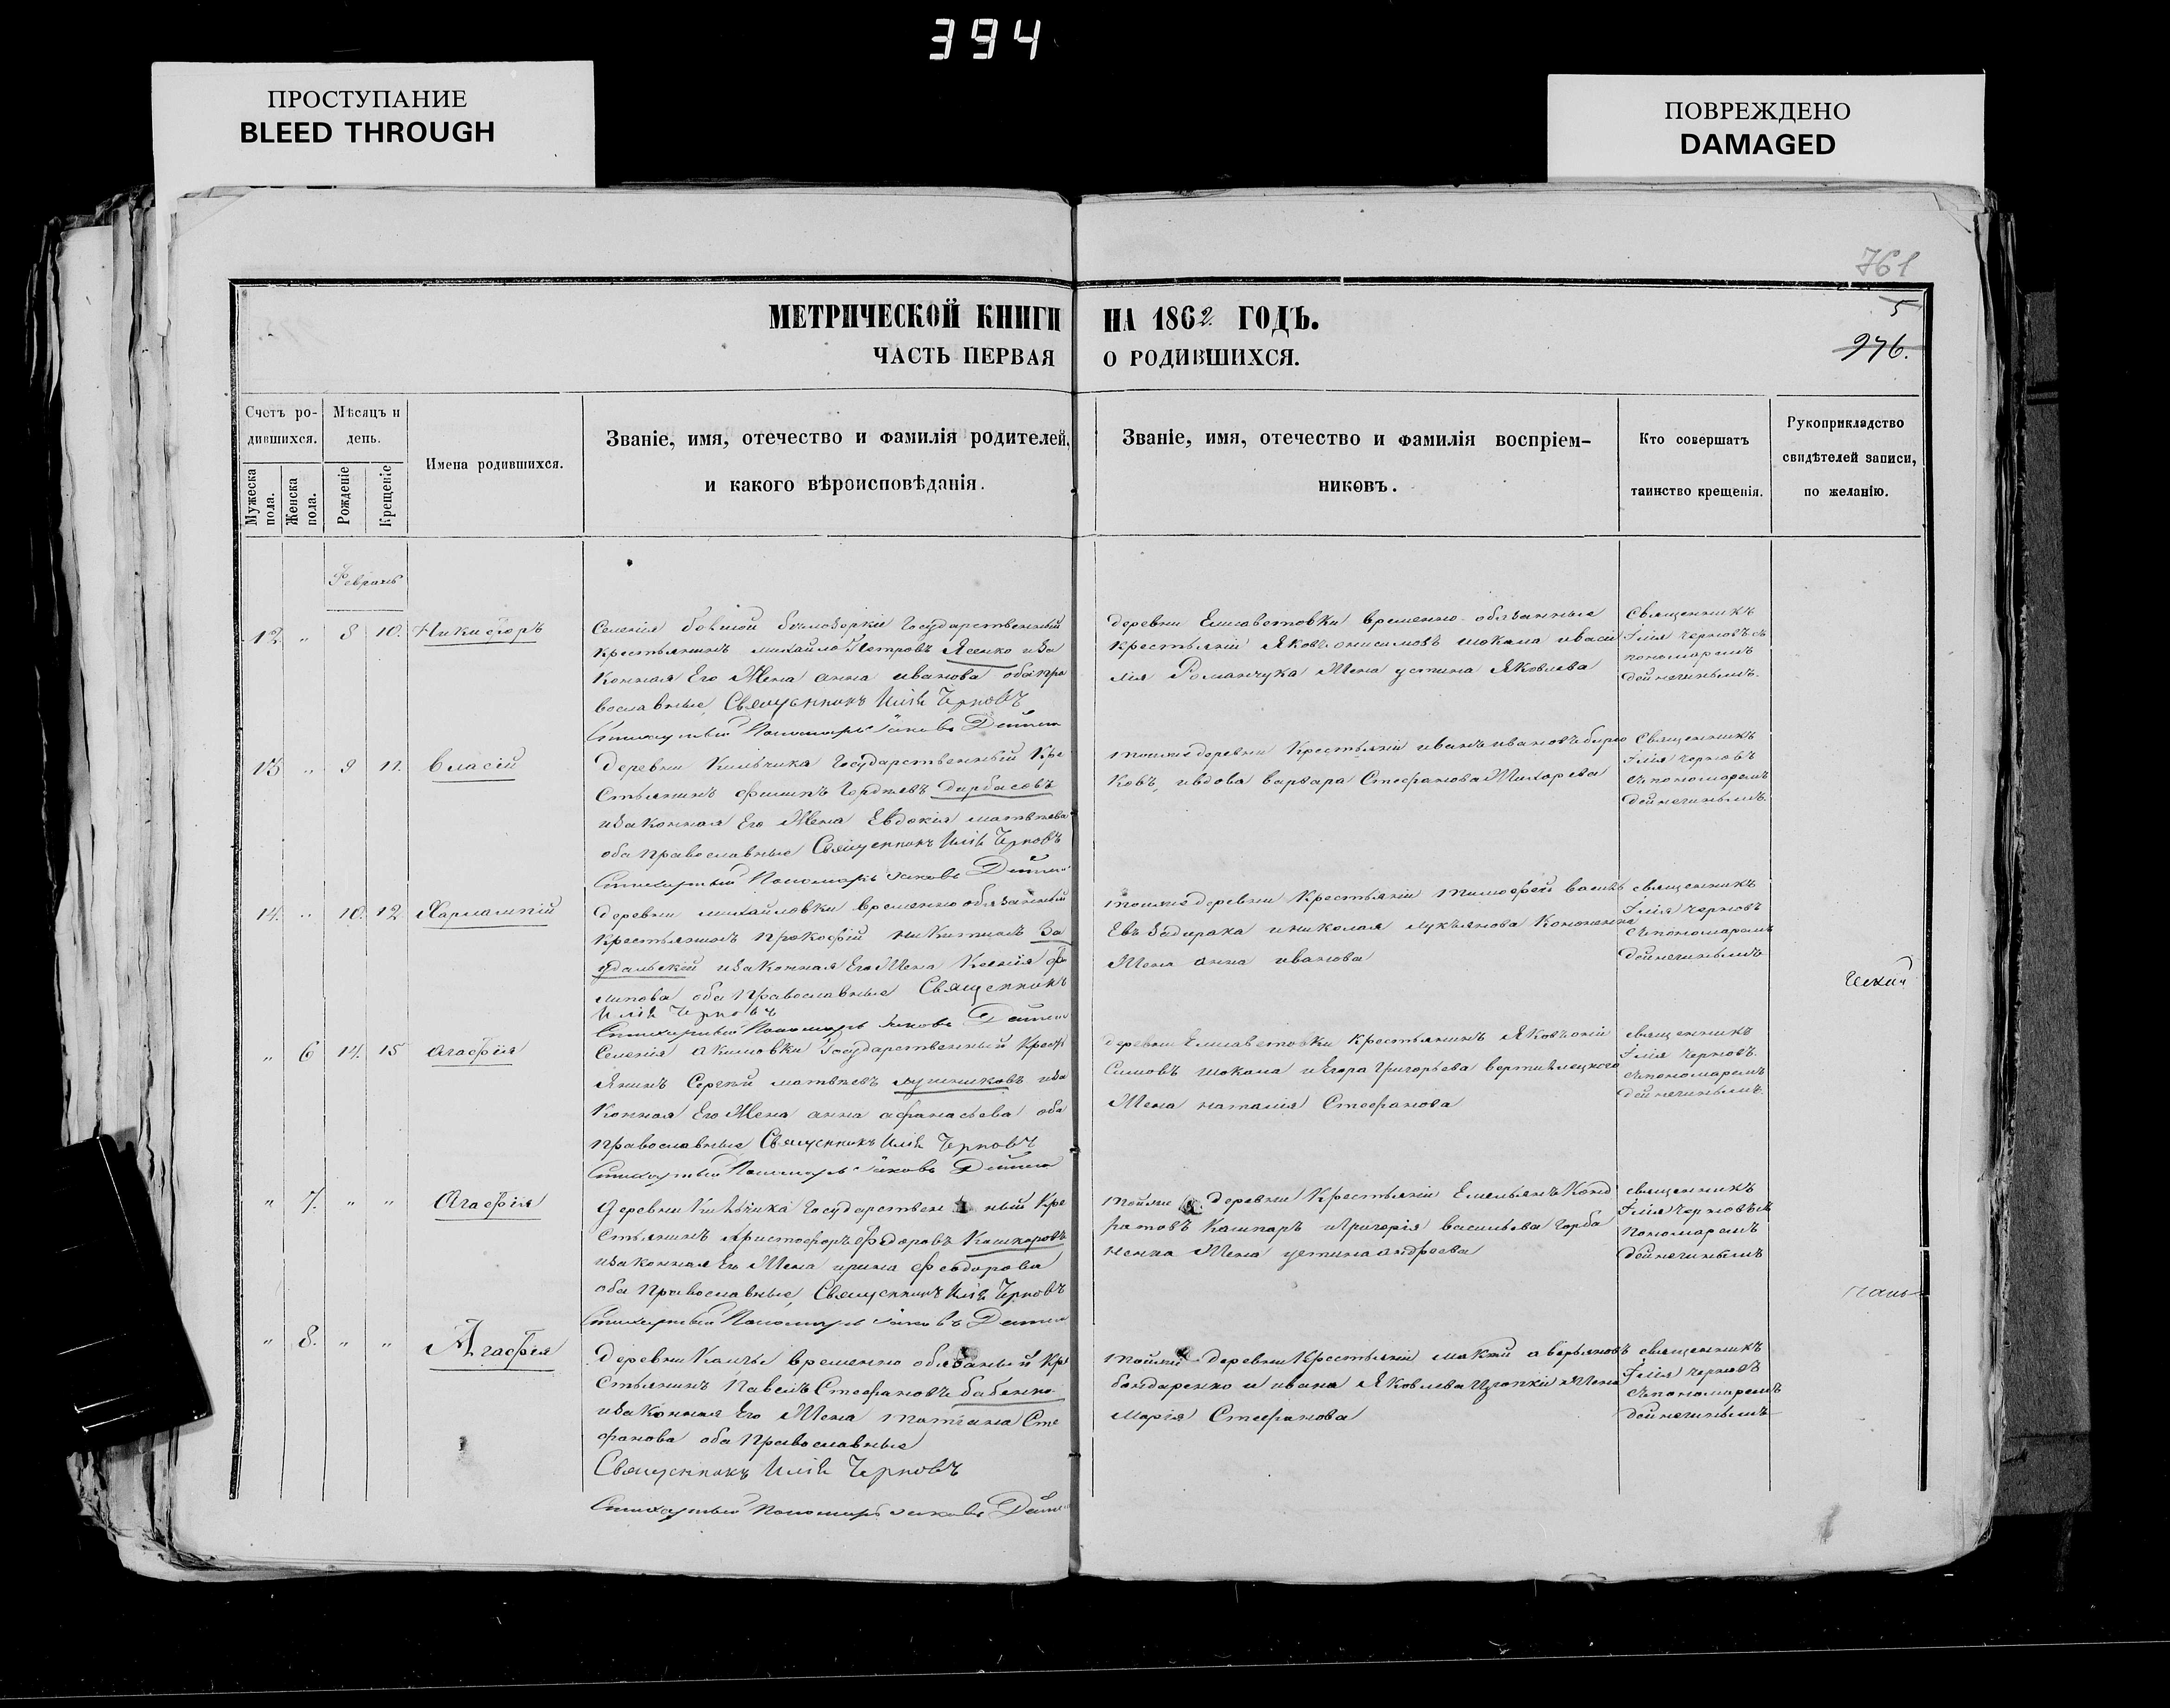 394
ПРОСТУПАНИЕ
BLEED THROUGH
ПОВРЕЖДЕНО
DAMAGED
761
5
976.
МЕТРИЧЕСКОЙ КНИГИ НА 1862 ГОДЪ.
ЧАСТЬ ПЕРВАЯ О РОДИВШИХСЯ.
Счетъ ро-
дившихся.
Мужеска
пола.
Женска
пола.
Мѣсяцъ и
день.
Рожденіе
Крещеніе
Имена родившихся.
Званіе, имя, отечество и фамилія родителей,
и какого вѣроисповѣданія.
Званіе, имя, отечество и фамилія воспріем-
никовъ.
Кто совершатъ
таинство крещенія.
Рукоприкладство
свидѣтелей записи,
по желанію.
Февраль
12 „ 8 10. Никифоръ
Селенія Государственный
Крестьянинъ михайло Петровъ Ясенко иза
Конная Его Жена анна иванова оба пра
вославные, Священникъ Илія Черновъ
Пономарь
деревни Елисаветовки временно обязанные
крестьяніи Яковъ онисимовъ шокала иваси
лія Романчука Жена устина Яковлева
священникъ
Ілія черновъ съ
пономаремъ
дейнегинымъ.
13 „ 9 11. Власій
деревни Кильчика Государственный Кре
стьянинъ филипъ Гордѣевъ Дирбасовъ
изаконная Его Жена Евдокія матвѣева
оба православные Священникъ Илія Черновъ
Пономарь
тойже деревни Крестьяніи иванъ ивановъ бирю
ковъ, ивдова варвара Стефанова
Священникъ
Ілія черновъ
съпономаремъ
дейнегинымъ.
14. „ 10. 12. Харлампій
деревни михайловки временно обязанный
крестьянинъ прокофій никитинъ За
изаконная Его Жена Ксенія фи
липова оба Православные Священникъ
Илія Черновъ
Пономарь
тойже деревни Крестьяніи тимофей василь
Евъ Задирака иниколая лукьянова Кононенка
Жена анна иванова
священникъ
Ілія черновъ
съпономаремъ
дейнегинымъ
„ 6 14. 15 агафія
Селенія акимовки Государственный Крест
Янинъ Сергѣй матвѣевъ лушниковъ иза
Конная Его Жена анна афанасьева оба
православные Священникъ Илія Черновъ
Пономарь
деревни Елисаветовки крестьянинъ Яковъ они
симовъ шокала иЕгора Григорьева
Жена наталія Стефанова
священникъ
Ілія черновъ.
съпономаремъ
дейнегинымъ.
„ 7. „ „ Агафія
деревни Кильчика Государствен ный Кре
стьянинъ Христофоръ Федоровъ Кашкаровъ
изаконная Его Жена ирина Феодорова
оба Православные, Священникъ Илія Черновъ
Пономарь
тойже деревни Крестьяніи Емельянъ Конд
ратовъ Кашпаръ иГригорія васильева горба
ненка Жена устина андреева
священникъ
Ілія черновъ съ
пономаремъ
дейнегинымъ
„ 8. „ „ Агафія
деревни временно обязаный кре
стьянинъ Павелъ Стефановъ бабенко
изаконная Его Жена татіана Сте
фанова оба Православные
Священникъ Илія Черновъ
Пономарь
тойже деревни Крестьяніи аверьяновъ
бондаренко и ивана Яковлева Жена
марія Стефанова
священникъ
Ілія черновъ
съпономаремъ
дейнегинымъ